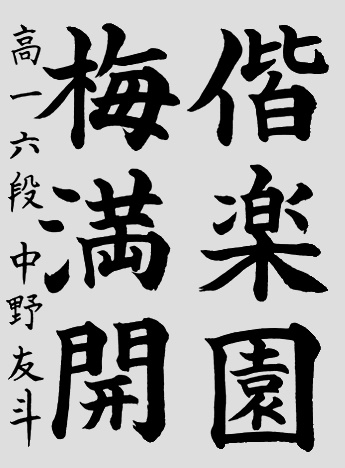 偕楽園
梅満開
高一六段中野友斗